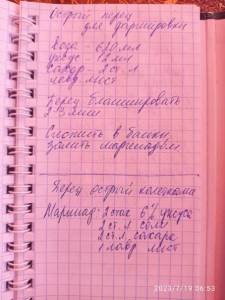 Острый перец
для фаршировки
Вода - 620 мл
уксус - 12 мл
сахар - 2 ст л
лавр лист
Перец бланшировать
2-3 мин
Сложить в банки,
залить маринадом
Перец острый колечками
Маринад: 2 стак 6% уксуса
2 ст. л соли
2 ст. л сахара
1 лавр лист
2023/7/19 06:53